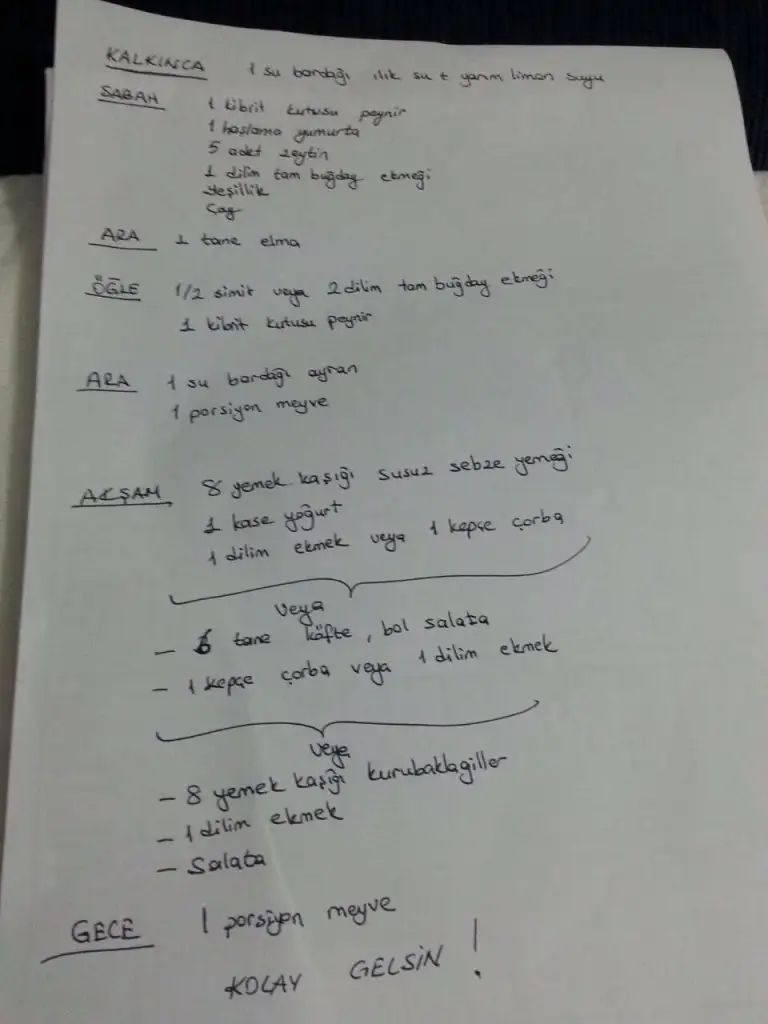 KALKINCA 1 su bardağı ılık su + yarım limon suyu
SABAH 1 kibrit kutusu peynir
1 haşlama yumurta
5 adet zeytin
1 dilim tam buğday ekmeği
Yeşillik
Çay
ARA 1 tane elma
ÖĞLE 1/2 simit veya 2 dilim tam buğday ekmeği
1 kibrit kutusu peynir
ARA 1 su bardağı ayran
1 porsiyon meyve
AKŞAM 8 yemek kaşığı susuz sebze yemeği
1 kase yoğurt
1 dilim ekmek veya 1 kepçe çorba
veya
- tane köfte, bol salata
- 1 kepçe çorba veya 1 dilim ekmek
veya
- 8 yemek kaşığı kurubaklagiller
- 1 dilim ekmek
- Salata
GECE 1 porsiyon meyve
KOLAY GELSİN !